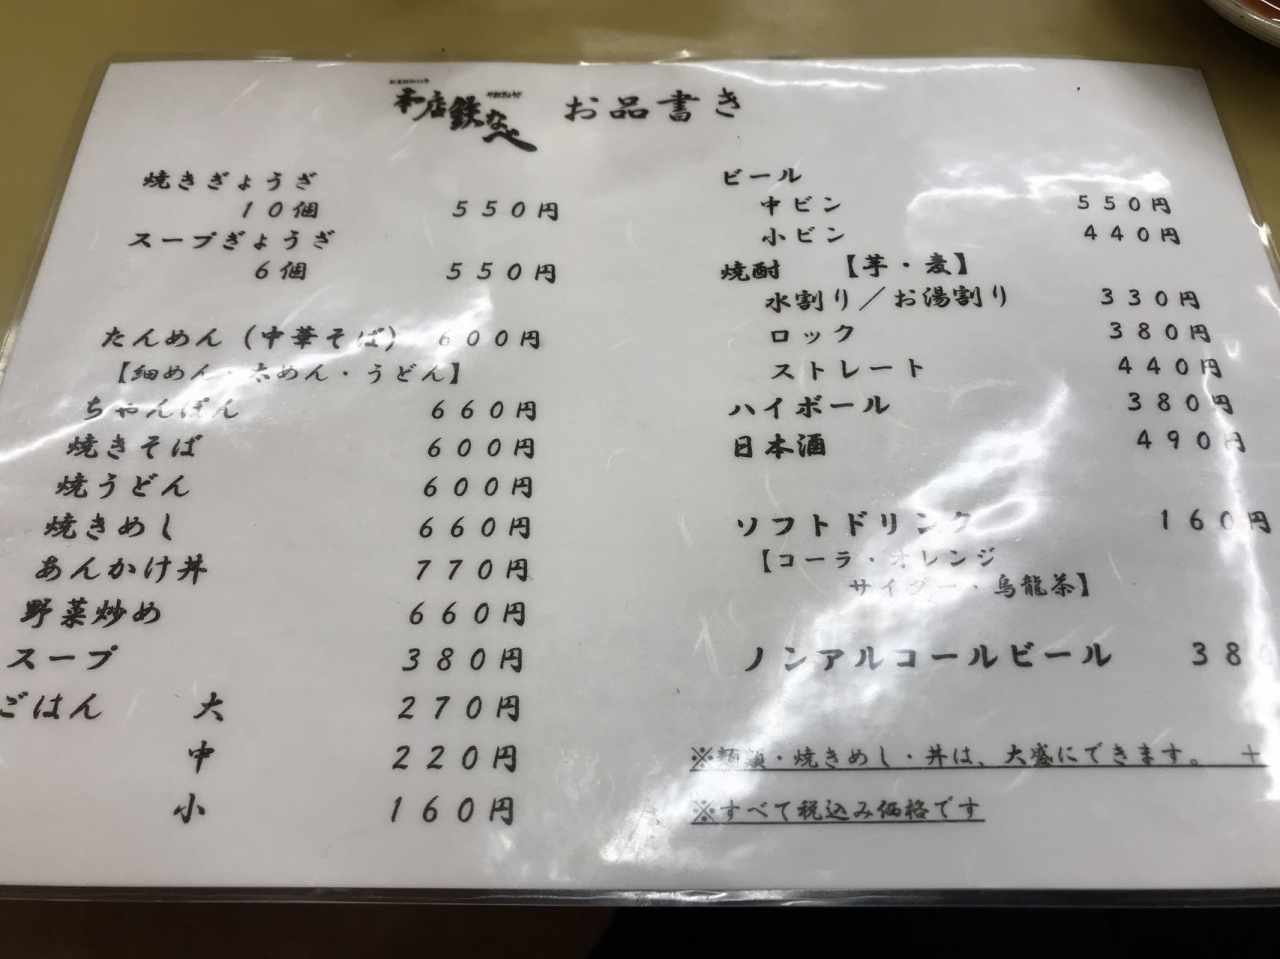 本店鉄なべ お品書き
焼きぎょうざ
10個 550円
スープぎょうざ
6個 550円
たんめん(中華そば) 600円
【細めん・太めん・うどん】
ちゃんぽん 660円
焼きそば 600円
焼うどん 600円
焼きめし 660円
あんかけ丼 770円
野菜炒め 660円
スープ 380円
ごはん 大 270円
中 220円
小 160円
ビール
中ビン 550円
小ビン 440円
焼酎 【芋・麦】
水割り/お湯割り 330円
ロック 380円
ストレート 440円
ハイボール 380円
日本酒 490円
ソフトドリンク 160円
【コーラ・オレンジ
サイダー・烏龍茶】
ノンアルコールビール 380
※麺類・焼きめし・丼は、大盛にできます。 +
※すべて税込み価格です